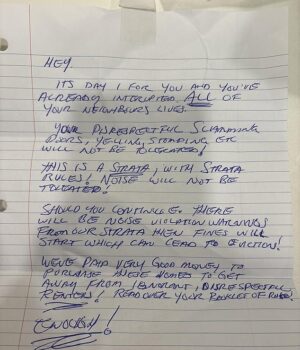 HEY.
ITS DAY 1 FOR YOU AND YOU'VE
ALREADY INTERUPTED, ALL OF
YOUR NEIGHBOURS LIVES.
YOUR DISRESPECTFUL SLAMMING
DOORS, YELLING, STOMPING ETC
WILL NOT BE TOLERATED!
THIS IS A STRATA, WITH STRATA
RULES! NOISE WILL NOT BE
TOLERATED!
SHOULD YOU CONTINUE THERE
WILL BE NOISE VIOLATION WARNINGS
FROM OUR STRATA THEN FINES WILL
START WHICH CAN LEAD TO EVICTION!
WE'VE PAID VERY GOOD MONEY TO
PURCHASE THESE HOMES TO GET
AWAY FROM IGNORANT, DISRESPECTFUL
RENTERS! READ OVER YOUR BOOKLET OF
ENOUGH!